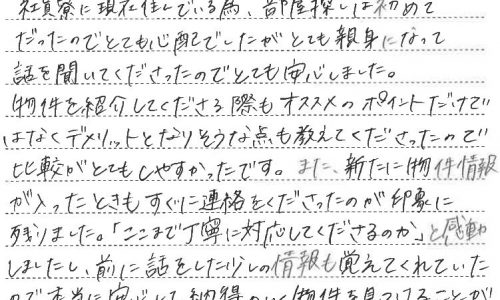 社員寮に現在住んでいる為、部屋探しは初めて
だったのでとても心配でしたがとても親身になって
話を聞いてくださったのでとても安心しました。
物件を紹介してくださる際もオススメのポイントだけで
はなくデメリットとなりそうな点も教えてくださったので
比較がとてもしやすかったです。また、新たに物件情報
が入ったときもすぐに連絡をくださったのが印象に
残りました。「ここまで丁寧に対応してくださるのか」と感動
しましたし、前に話をした少しの情報も覚えてくれていた
ので本当に安心して納得のいく物件を見つけることが